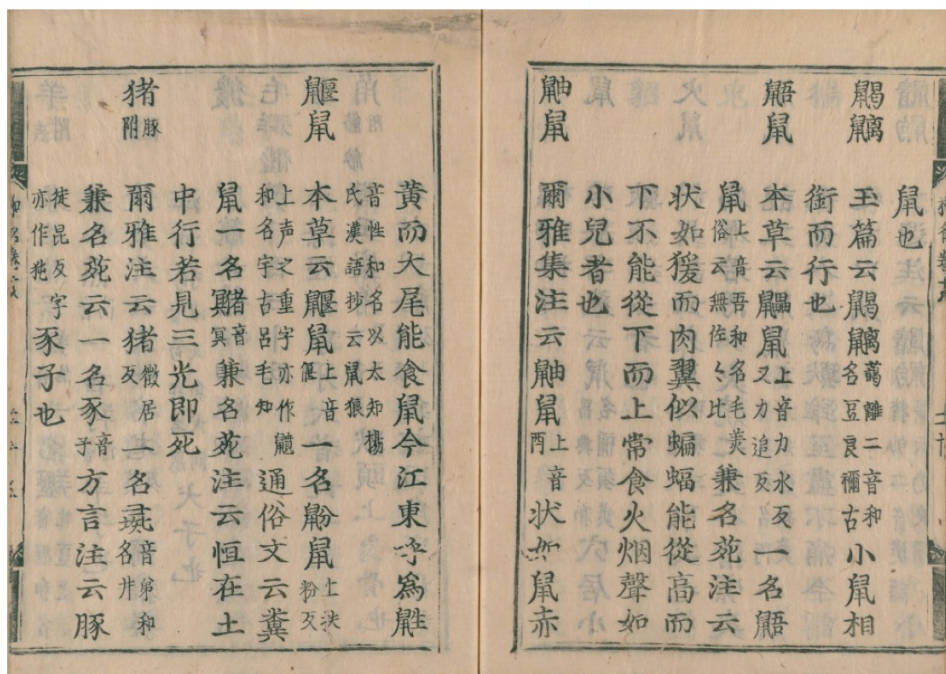 鼠也
䶅𪖂 玉篇云䶅𪖂藹離二音和名豆良禰古小鼠相
銜而行也
鼯鼠 本草云鼺鼠上音力水反又力追反一名鼯
鼠上音吾和名毛美俗云無佐々比兼名苑注云
状如猨而肉翼似蝙蝠能從高而
下不能從下而上常食火烟聲如
小兒者也
鼬鼠 爾雅集注云鼬鼠上音酉状如鼠赤
黄而大尾能食鼠今江東呼爲鼪
音性和名以太知揚氏漢語抄云鼠狼
鼹鼠 本草云鼹鼠上音偃一名鼢鼠上扶粉反
上声之重字亦作𪕐和名字古呂毛知通俗文云糞
鼠一名鼆音冥兼名苑注云恒在土
中行若見三光即死
猪豚附 爾雅注云猪徴居反一名彘音弟和名井
兼名苑云一名豕音子方言注云豚
徒昆反字亦作㹠豕子也